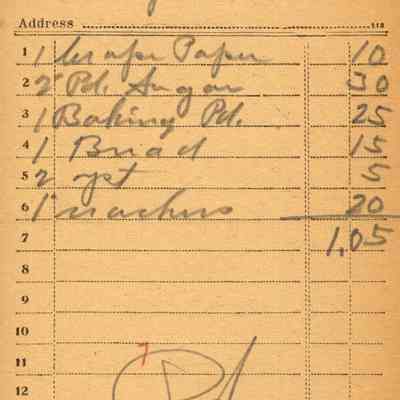 Address
1 1 Wax Paper 10
2 2 Pd. Sugar 30
3 1 Baking Pd. 25
4 1 Bread 15
5 2 yst 5
6 1 crackers 20
7 1.05
8
9
10
11
12
Pd